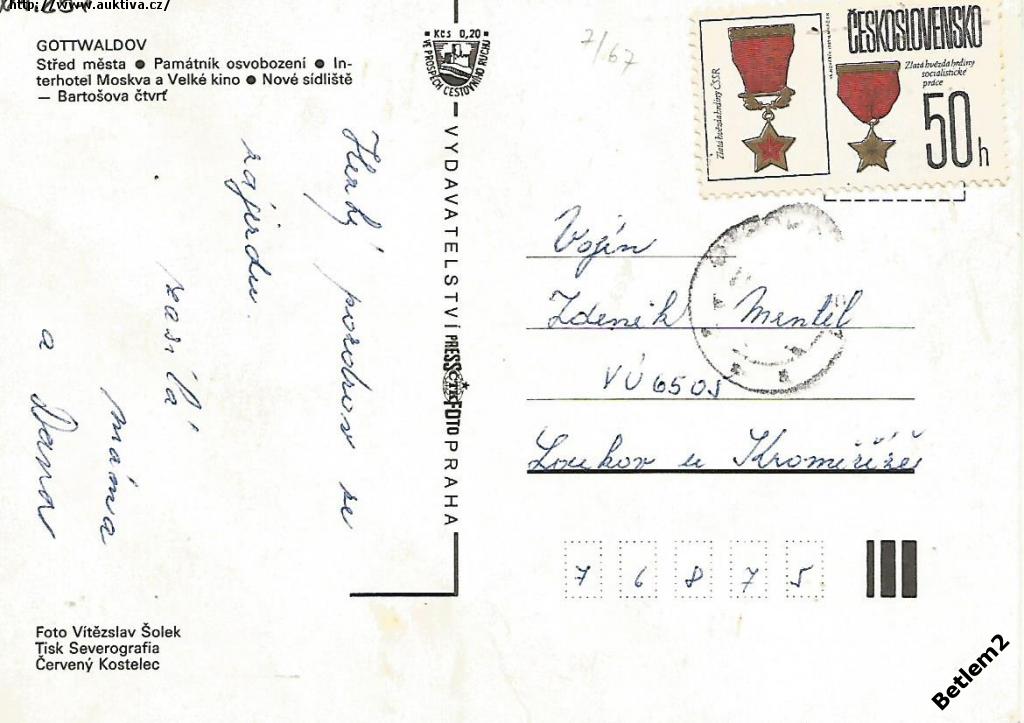 http://www.auktiva.cz/
GOTTWALDOV
Střed města ● Památník osvobození ● In-
terhotel Moskva a Velké kino ● Nové sídliště
— Bartošova čtvrť
Kčs 0,20
VE PROSPĚCH CESTOVNÍHO RUCHU
VYDAVATELSTVÍ PRESSFOTO PRAHA
ČTK
Hezký pozdrav ze
zájezdu
zasílá
máma
a Dana
7/67
ČESKOSLOVENSKO
Zlatá hvězda hrdiny ČSSR
Zlatá hvězda hrdiny
socialistické
práce
50 h
Vojín
Zdeněk Mentel
VÚ 6505
Loukov u Kroměříže
7 6 8 7 5
Foto Vítězslav Šolek
Tisk Severografia
Červený Kostelec
Betlem2